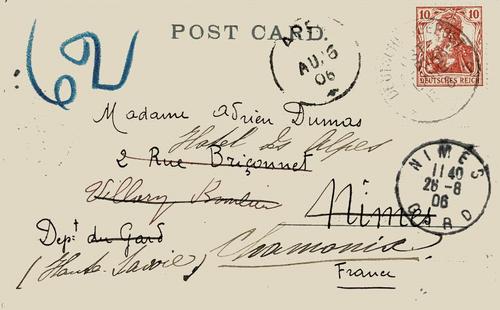 62
POST CARD.
AUG
06
10 10
DEUTSCHES REICH
Madame Adrien Dumas
Hotel des Alpes
2 Rue Briçonnet
Villars
Nimes
NIMES
11 40
26-8
06
GARD
Dept du Gard
Chamonix
(Haute Savoie)
France